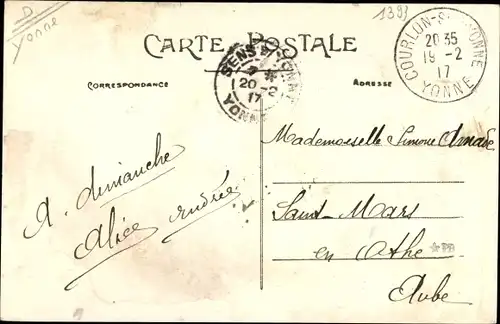 D
Yonne
1393
CARTE POSTALE
CORRESPONDANCE
ADRESSE
SENS YONNE
20-2
17
COURLON-S-YONNE
20 35
19-2
17
YONNE
A dimanche
Alice Andrée
Mademoiselle Simone
Saint-Mars
en Othe
Aube